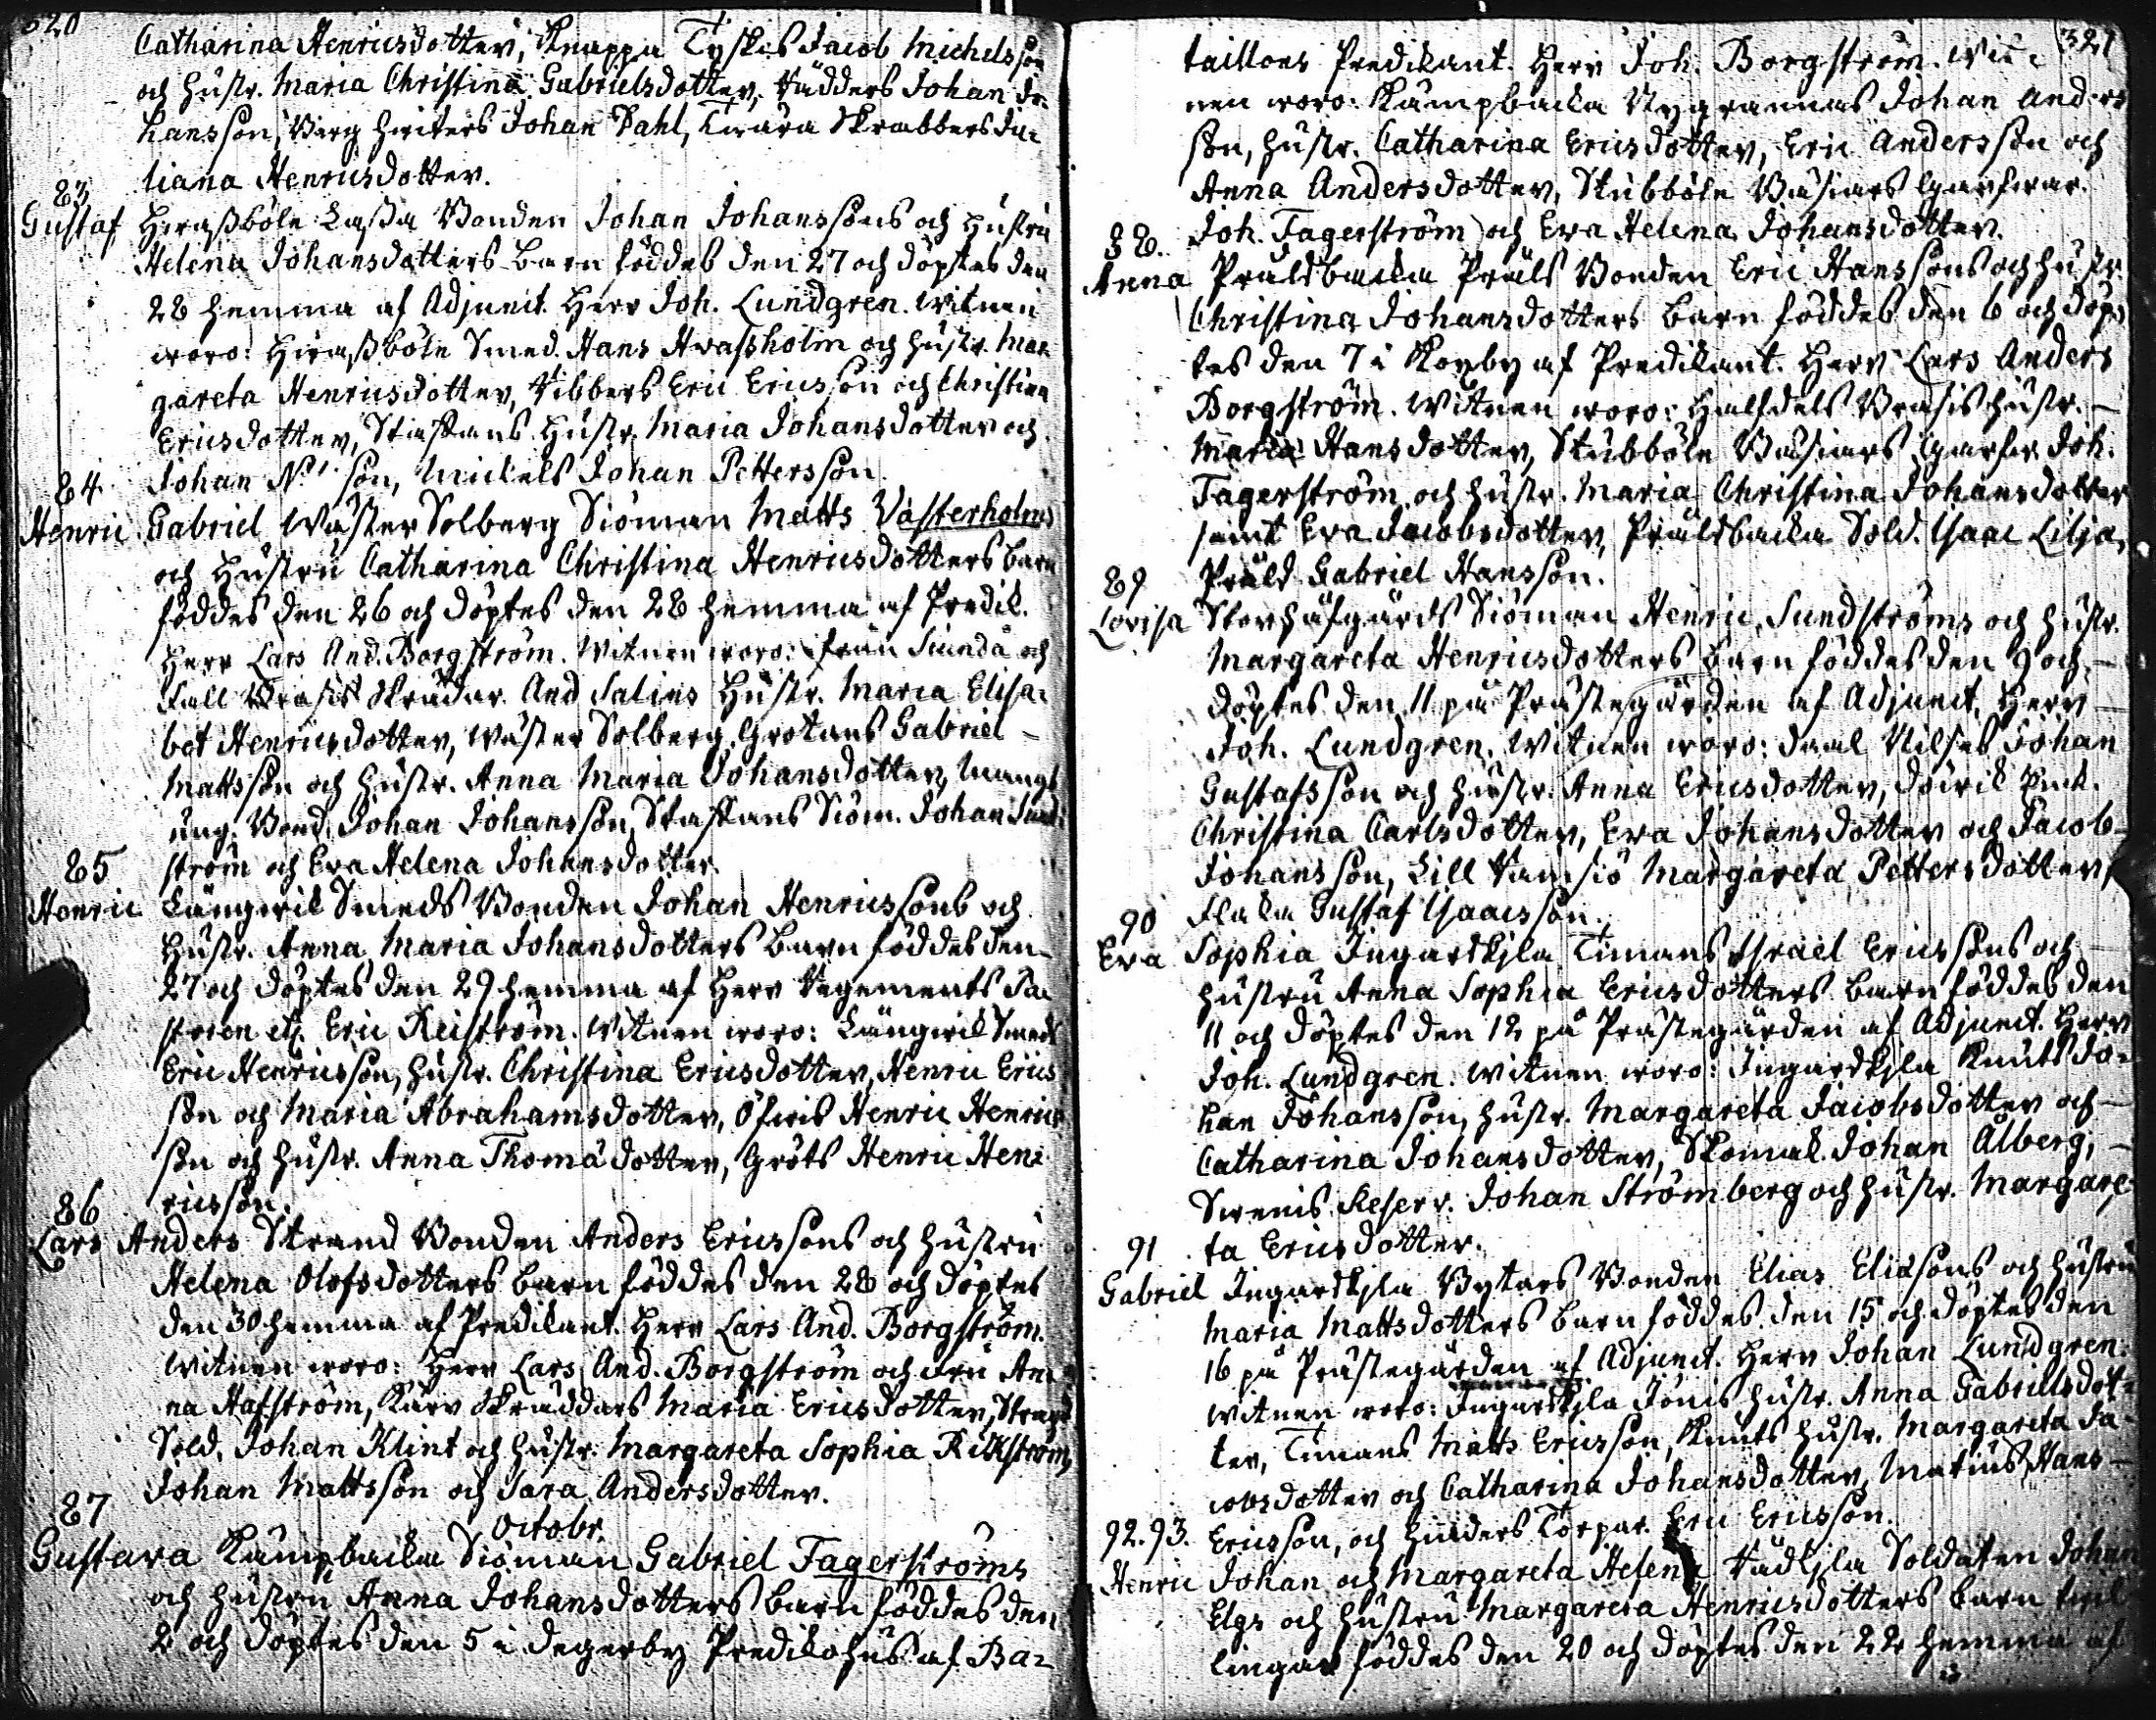 320
Catharina Henricsdotter, Knappa Tyskes Jacob Michelsson
och hustr. Maria Christina Gabrielsdotter, Rädders Johan Jo-
hansson, Johan Dahl, Skrabbers Ju-
liana Henricsdotter.
83
Gustaf Hirassböle Lassa Bonden Johan Johanssons och Hustru
Helena Johansdotters barn föddes den 27 och döptes den
28 hemma af Adjunct. Herr Joh. Lundgren. Witnen
woro: Hirassböle Smed. Hans Hrassholm och hustr. Mar-
gareta Henricsdotter, Ribbers Eric Ericsson och Christina
Ericsdotter, Staffans Hustr. Maria Johansdotter och
Johan N. son, Mickels Johan Pettersson
84
Henric Gabriel Wäster Solberg Siöman Matts Västerholms
och Hustru Catharina Christina Henricsdotters barn
föddes den 26 och döptes den 28 hemma af Predik.
Herr Lars And. Borgström. Witnen woro: från Siundå och
Fall Skrädar. And Salins Hustr. Maria Elisa-
bet Henricsdotter, Wäster Solberg Grotans Gabriel
Mattsson och hustr. Anna Maria Johansdotter, Mangs
ung. Bond. Johan Johansson, Staffans Siöm. Johan Sund-
ström och Eva Helena Johansdotter.
85
Henric Långwik Smeds Bonden Johan Henricssons och
Hustr. Anna Maria Johansdotters barn föddes den
27 och döptes den 29 hemma af Herr Regements Pa-
storen etc. Eric Reiström. Witnen woro: Långwik Smeds
Eric Henricsson, hustr. Christina Ericsdotter, Henric Erics
son och Maria Abrahamsdotter, Öfwis Henric Henrics
son och hustr. Anna Thomædotter, Gröts Henric Hen-
ricsson.
86
Lars Anders Strand Bonden Anders Ericssons och hustru
Helena Olofsdotters barn föddes den 28 och döptes
den 30 hemma af Predikant. Herr Lars And. Borgström.
Witnen woro: Herr Lars And. Borgström och Fru An-
na Hafström, Kärr Skräddars Maria Ericsdotter, Strand
Sold. Johan Klint och hustr. Margareta Sophia Rickström,
Johan Mattsson och Sara Andersdotter.
87
Octobr.
Gustava Kämpbacka Siöman Gabriel Fagerströms
och hustru Anna Johansdotters barn föddes den
2 och döptes den 5 i Degerby Predikohus af Ba-
321
taillons Predikant. Herr Joh. Borgström. Wit-
nen woro: Kämpbacka Nygrannas Johan Anders
son, hustr. Catharina Ericsdotter, Eric Andersson och
Anna Andersdotter, Stubböle Garfwar.
Joh. Fagerström och Eva Helena Johansdotter.
88.
Anna Präldbacka Präls Bonden Eric Hanssons och hustr.
Christina Johansdotters barn föddes den 6 och döp-
tes den 7 i Kopby af Predikant. Herr Lars Anders
Borgström. Witnen woro: Halfdels hustr.
Maria Hansdotter, Stubböle Garfw. Joh.
Fagerström och hustr. Maria Christina Johansdotter
samt Eva Jacobsdotter, Präldbacka Sold. Isaac Lilja,
Präld Gabriel Hansson.
89
Lovisa Storhäfgårds Siöman Henric Sundströms och hustr.
Margareta Henricsdotters barn föddes den 9 och
döptes den 11 på Prästegården af Adjunct. Herr
Joh. Lundgren. Witnen woro: Daal Nilses Johan
Gustafsson och hustr. Anna Ericsdotter, Döwik
Christina Carlsdotter, Eva Johansdotter och Jacob
Johansson, Lill Ramsiö Margareta Pettersdotter,
Flaka Gustaf Isaacsson.
90
Eva Sophia Ingarskjla Timans Israel Ericssons och
hustru Anna Sophia Ericsdotters barn föddes den
11 och döptes den 12 på Prästegården af Adjunct. Herr
Joh. Lundgren. Witnen woro: Ingarskjla Knuts Jo-
han Johansson, hustr. Margareta Jacobsdotter och
Catharina Johansdotter, Skomak. Johan Ålberg,
Swenis Reserv. Johan Strömberg och hustr. Margare-
ta Ericsdotter.
91
Gabriel Ingarskjla Bytars Bonden Elias Eliæsons och hustru
Maria Mattsdotters barn föddes den 15 och döptes den
16 på Prästegården af Adjunct. Herr Johan Lundgren.
Witnen woro: Ingarskjla Jönis hustr. Anna Gabrielsdot-
ter, Timans Matts Ericsson, Knuts hustr. Margareta Ja-
cobsdotter och Catharina Johansdotter, Hans
Ericsson, och Hinders Torpar. Eric Ericsson.
92.93.
Henric Johan och Margareta Helena Rådkjla Soldaten Johan
Elgs och hustru Margareta Henricsdotters barn twil-
lingar föddes den 20 och döptes den 22 hemma af